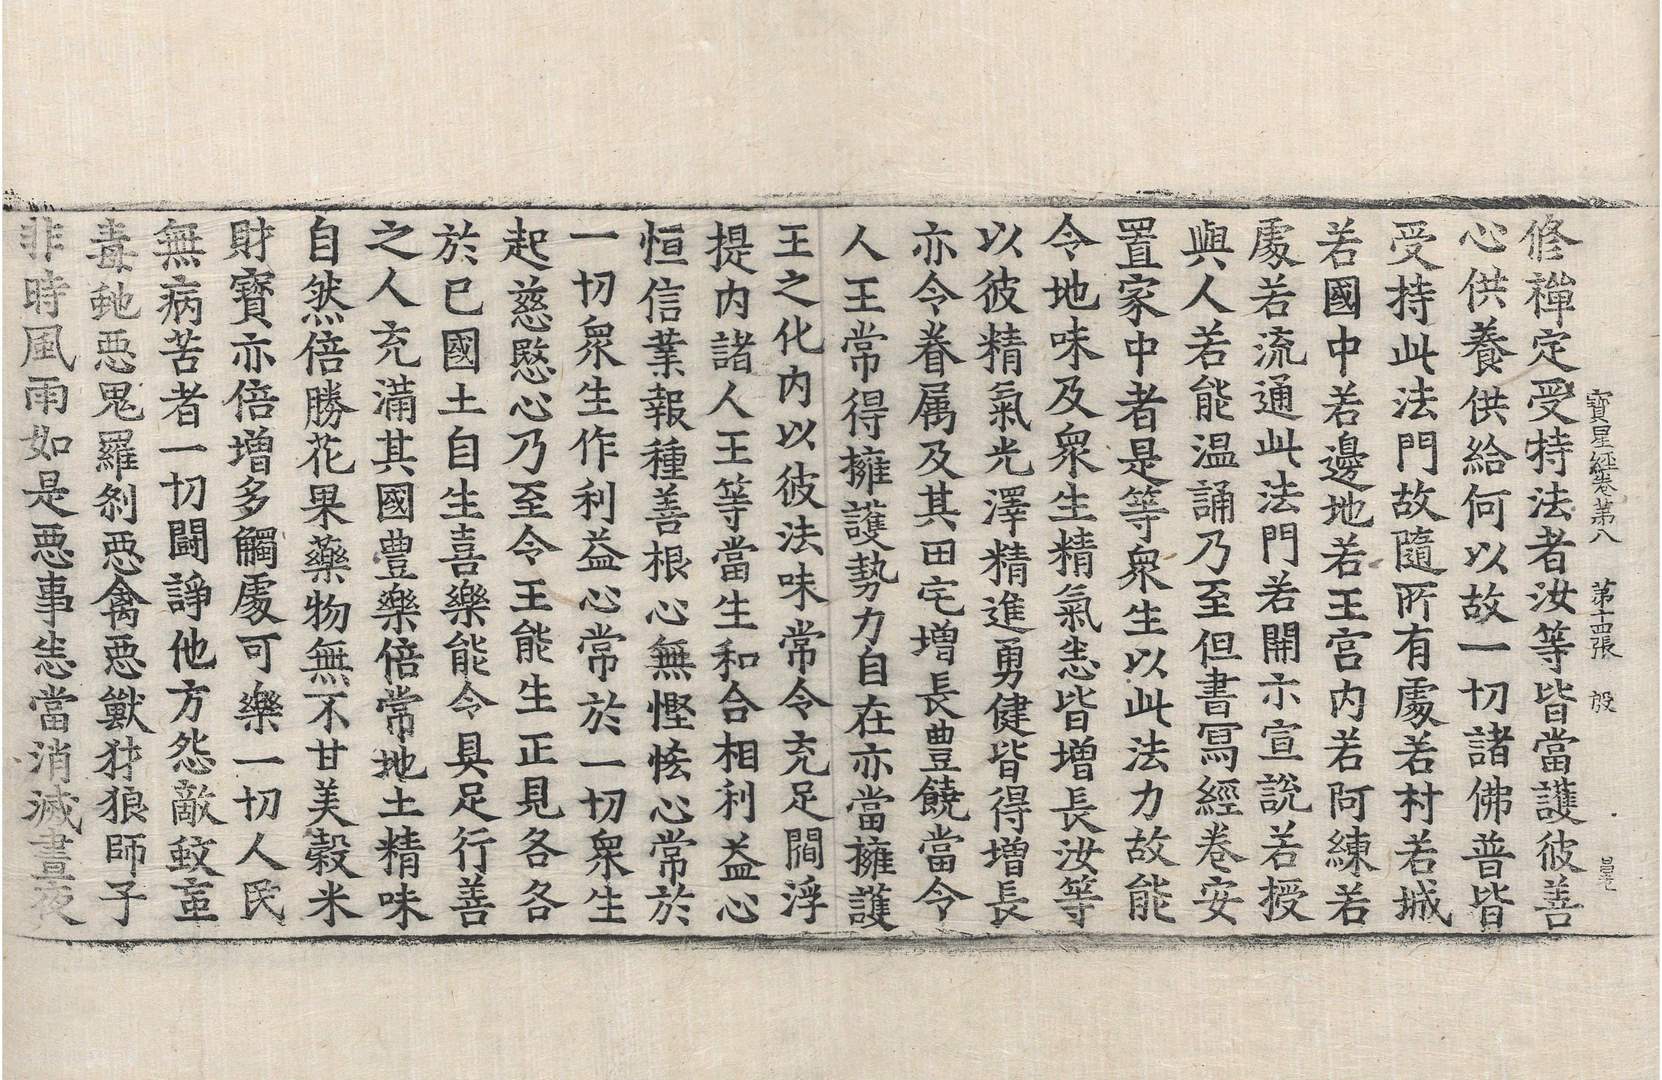 寶星經卷第八　第十四張　殷
修禪定受持法者汝等皆當護彼善
心供養供給何以故一切諸佛普皆
受持此法門故隨所有處若村若城
若國中若邊地若王宮內若阿練若
處若流通此法門若開示宣說若授
與人若能温誦乃至但書寫經卷安
置家中者是等衆生以此法力故能
令地味及衆生精氣悉皆增長汝等
以彼精氣光澤精進勇健皆得增長
亦令眷属及其田宅增長豊饒當令
人王常得擁護勢力自在亦當擁護
王之化内以彼法味常令充足閻浮
提内諸人王等當生和合相利益心
恒信業報種善根心無慳悋心常於
一切衆生作利益心常於一切衆生
起慈愍心乃至令王能生正見各各
於已國土自生喜樂能令具足行善
之人充滿其國豊樂倍常地土精味
自然倍勝花果藥物無不甘美穀米
財寶亦倍增多觸處可樂一切人民
無病苦者一切鬪諍他方怨敵蚊䖟
毒虵惡鬼羅刹惡禽惡獸犲狼師子
非時風雨如是惡事悉當消滅晝夜